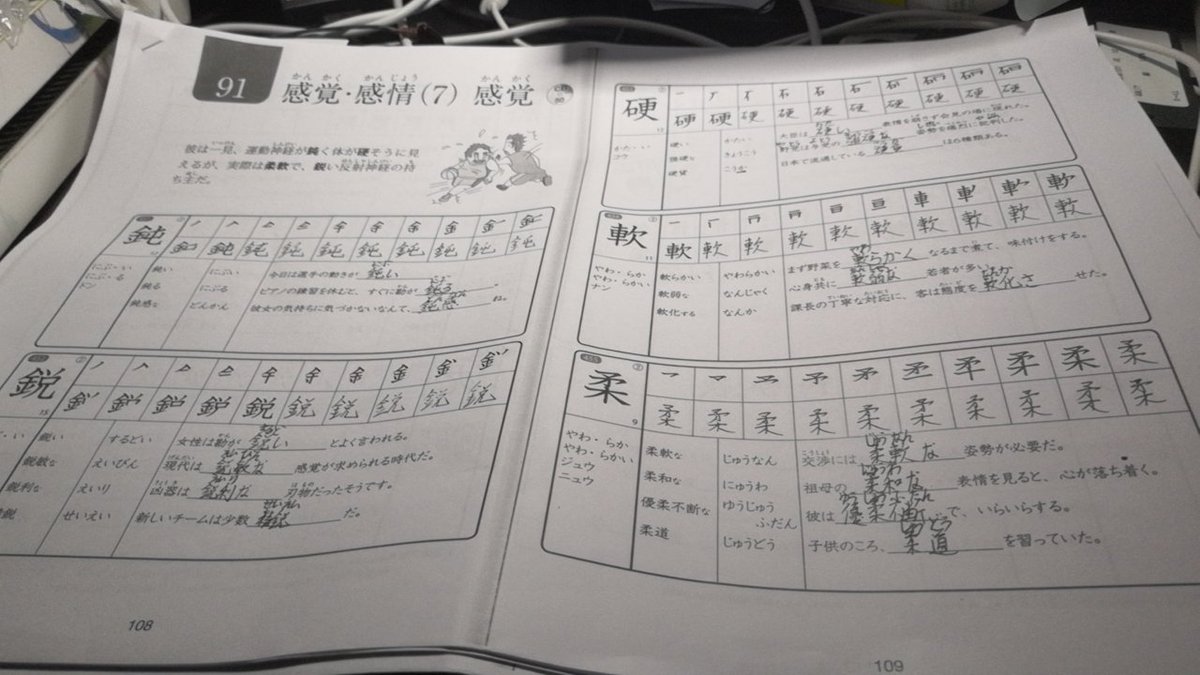 91
感覚・感情(7) 感覚
かん かく かん じょう かん かく
彼は一見、運動神経が鈍く体が硬そうに見
えるが、実際は柔軟で、鋭い反射神経の持
ち主だ。
鈍
にぶ・い
にぶ・る
ドン
鈍い にぶい 今日は選手の動きが 鈍い
鈍る にぶる ピアノの練習を休むと、すぐに勘が 鈍る 。
鈍感な どんかん 彼女の気持ちに気づかないなんて、 鈍感 ね。
鋭
15
鋭い するどい 女性は勘が 鋭い とよく言われる。
鋭敏な えいびん 現代は 鋭敏な 感覚が求められる時代だ。
鋭利な えいり 凶器は 鋭利な 刃物だったそうです。
せいえい 新しいチームは少数 だ。
108
硬
12
かた・い
コウ
硬い かたい 大臣は 硬い 表情を崩さず会見の場に現れた。
強硬な きょうこう 野党は 姿勢を痛烈に批判した。
硬貨 こうか 日本で流通している 硬貨 は6種類ある。
軟
11
やわ・らか
やわ・らかい
ナン
軟らかい やわらかい まず野菜を 軟らかく なるまで煮て、味付けをする。
軟弱な なんじゃく 心身共に 軟弱な 若者が多い。
軟化する なんか 課長の丁寧な対応に、客は態度を 軟化さ せた。
柔
9
やわ・らか
やわ・らかい
ジュウ
ニュウ
柔軟な じゅうなん 交渉には 柔軟な 姿勢が必要だ。
柔和な にゅうわ 祖母の 柔和な 表情を見ると、心が落ち着く。
優柔不断な ゆうじゅう ふだん 彼は 優柔 で、いらいらする。
柔道 じゅうどう 子供のころ、 柔道 を習っていた。
109